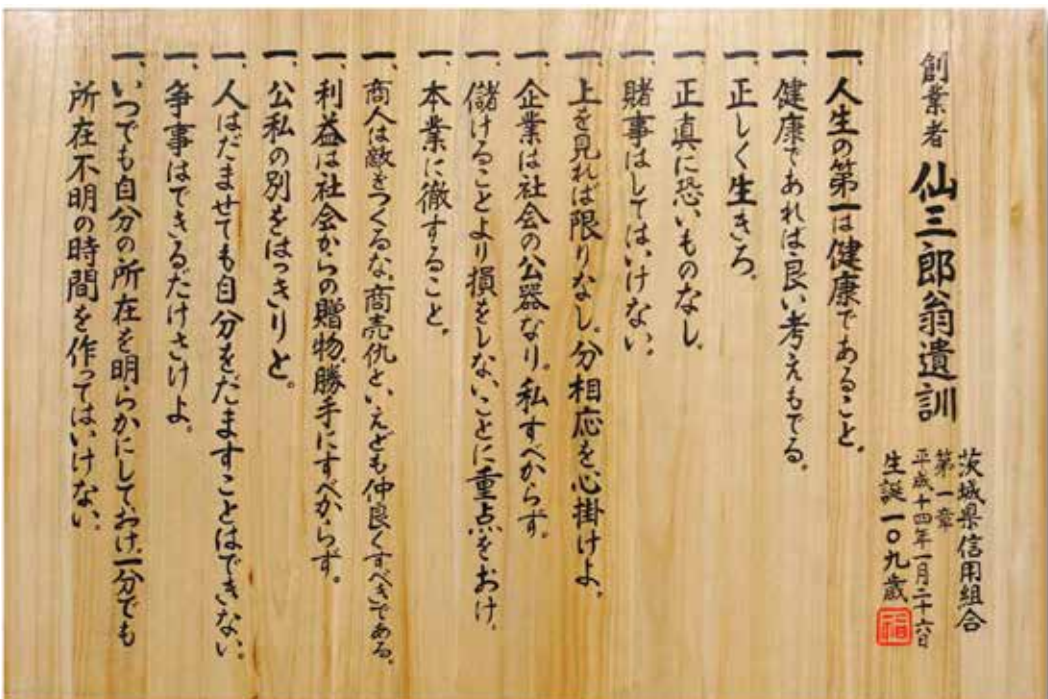 創業者 仙三郎翁遺訓
茨城県信用組合
第一章
平成十四年一月二十六日
生誕一〇九歳
一、人生の第一は健康であること。
一、健康であれば良い考えもでる。
一、正しく生きろ。
一、正真に恐いものなし。
一、賭事はしてはいけない。
一、上を見れば限りなし。分相応を心掛けよ。
一、企業は社会の公器なり。私すべからず。
一、儲けることより損をしないことに重点をおけ。
一、本業に徹すること。
一、商人は敵をつくるな。商売仇と、いえども仲良くすべきである。
一、利益は社会からの贈物、勝手にすべからず。
一、公私の別をはっきりと。
一、人はだませても自分をだますことはできない。
一、争事はできるだけさけよ。
一、いつでも自分の所在を明らかにしておけ、一分でも
所在不明の時間を作ってはいけない。